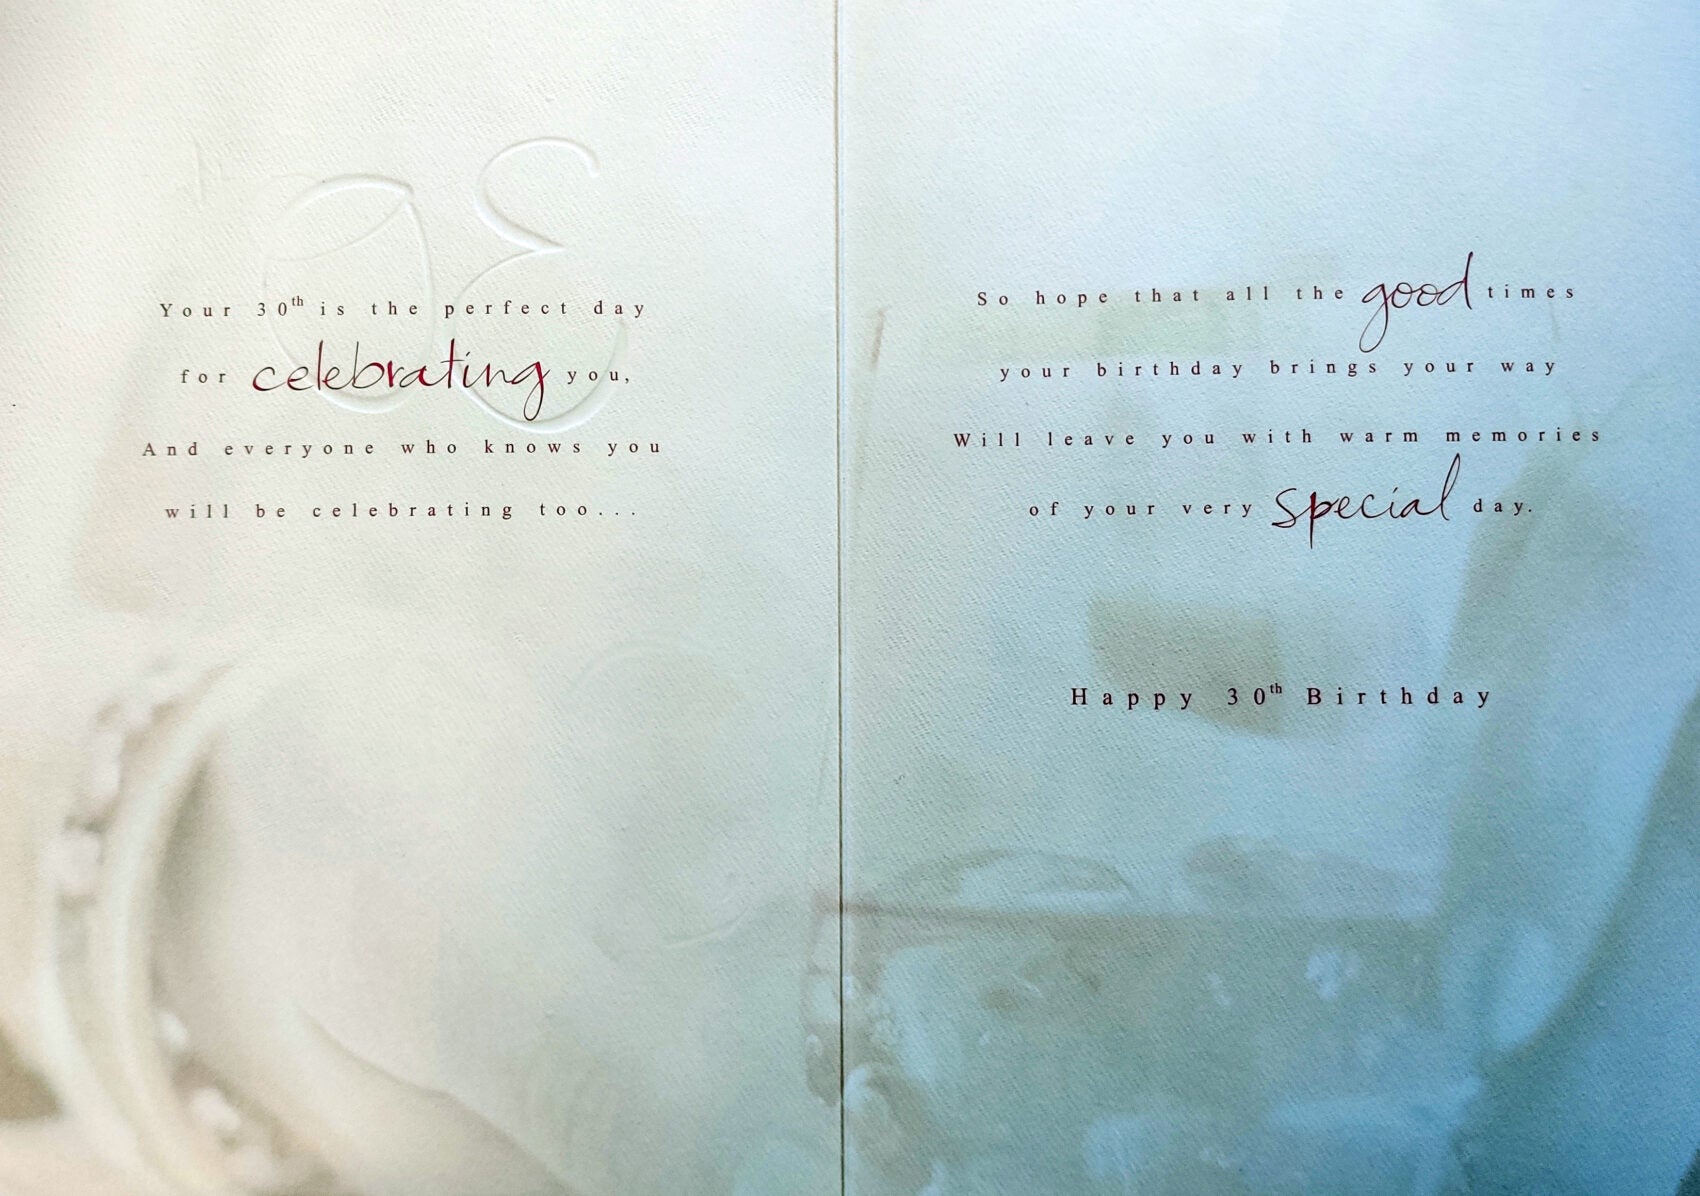 Your 30th is the perfect day
for celebrating you,
And everyone who knows you
will be celebrating too...
So hope that all the good times
your birthday brings your way
Will leave you with warm memories
of your very special day.
Happy 30th Birthday